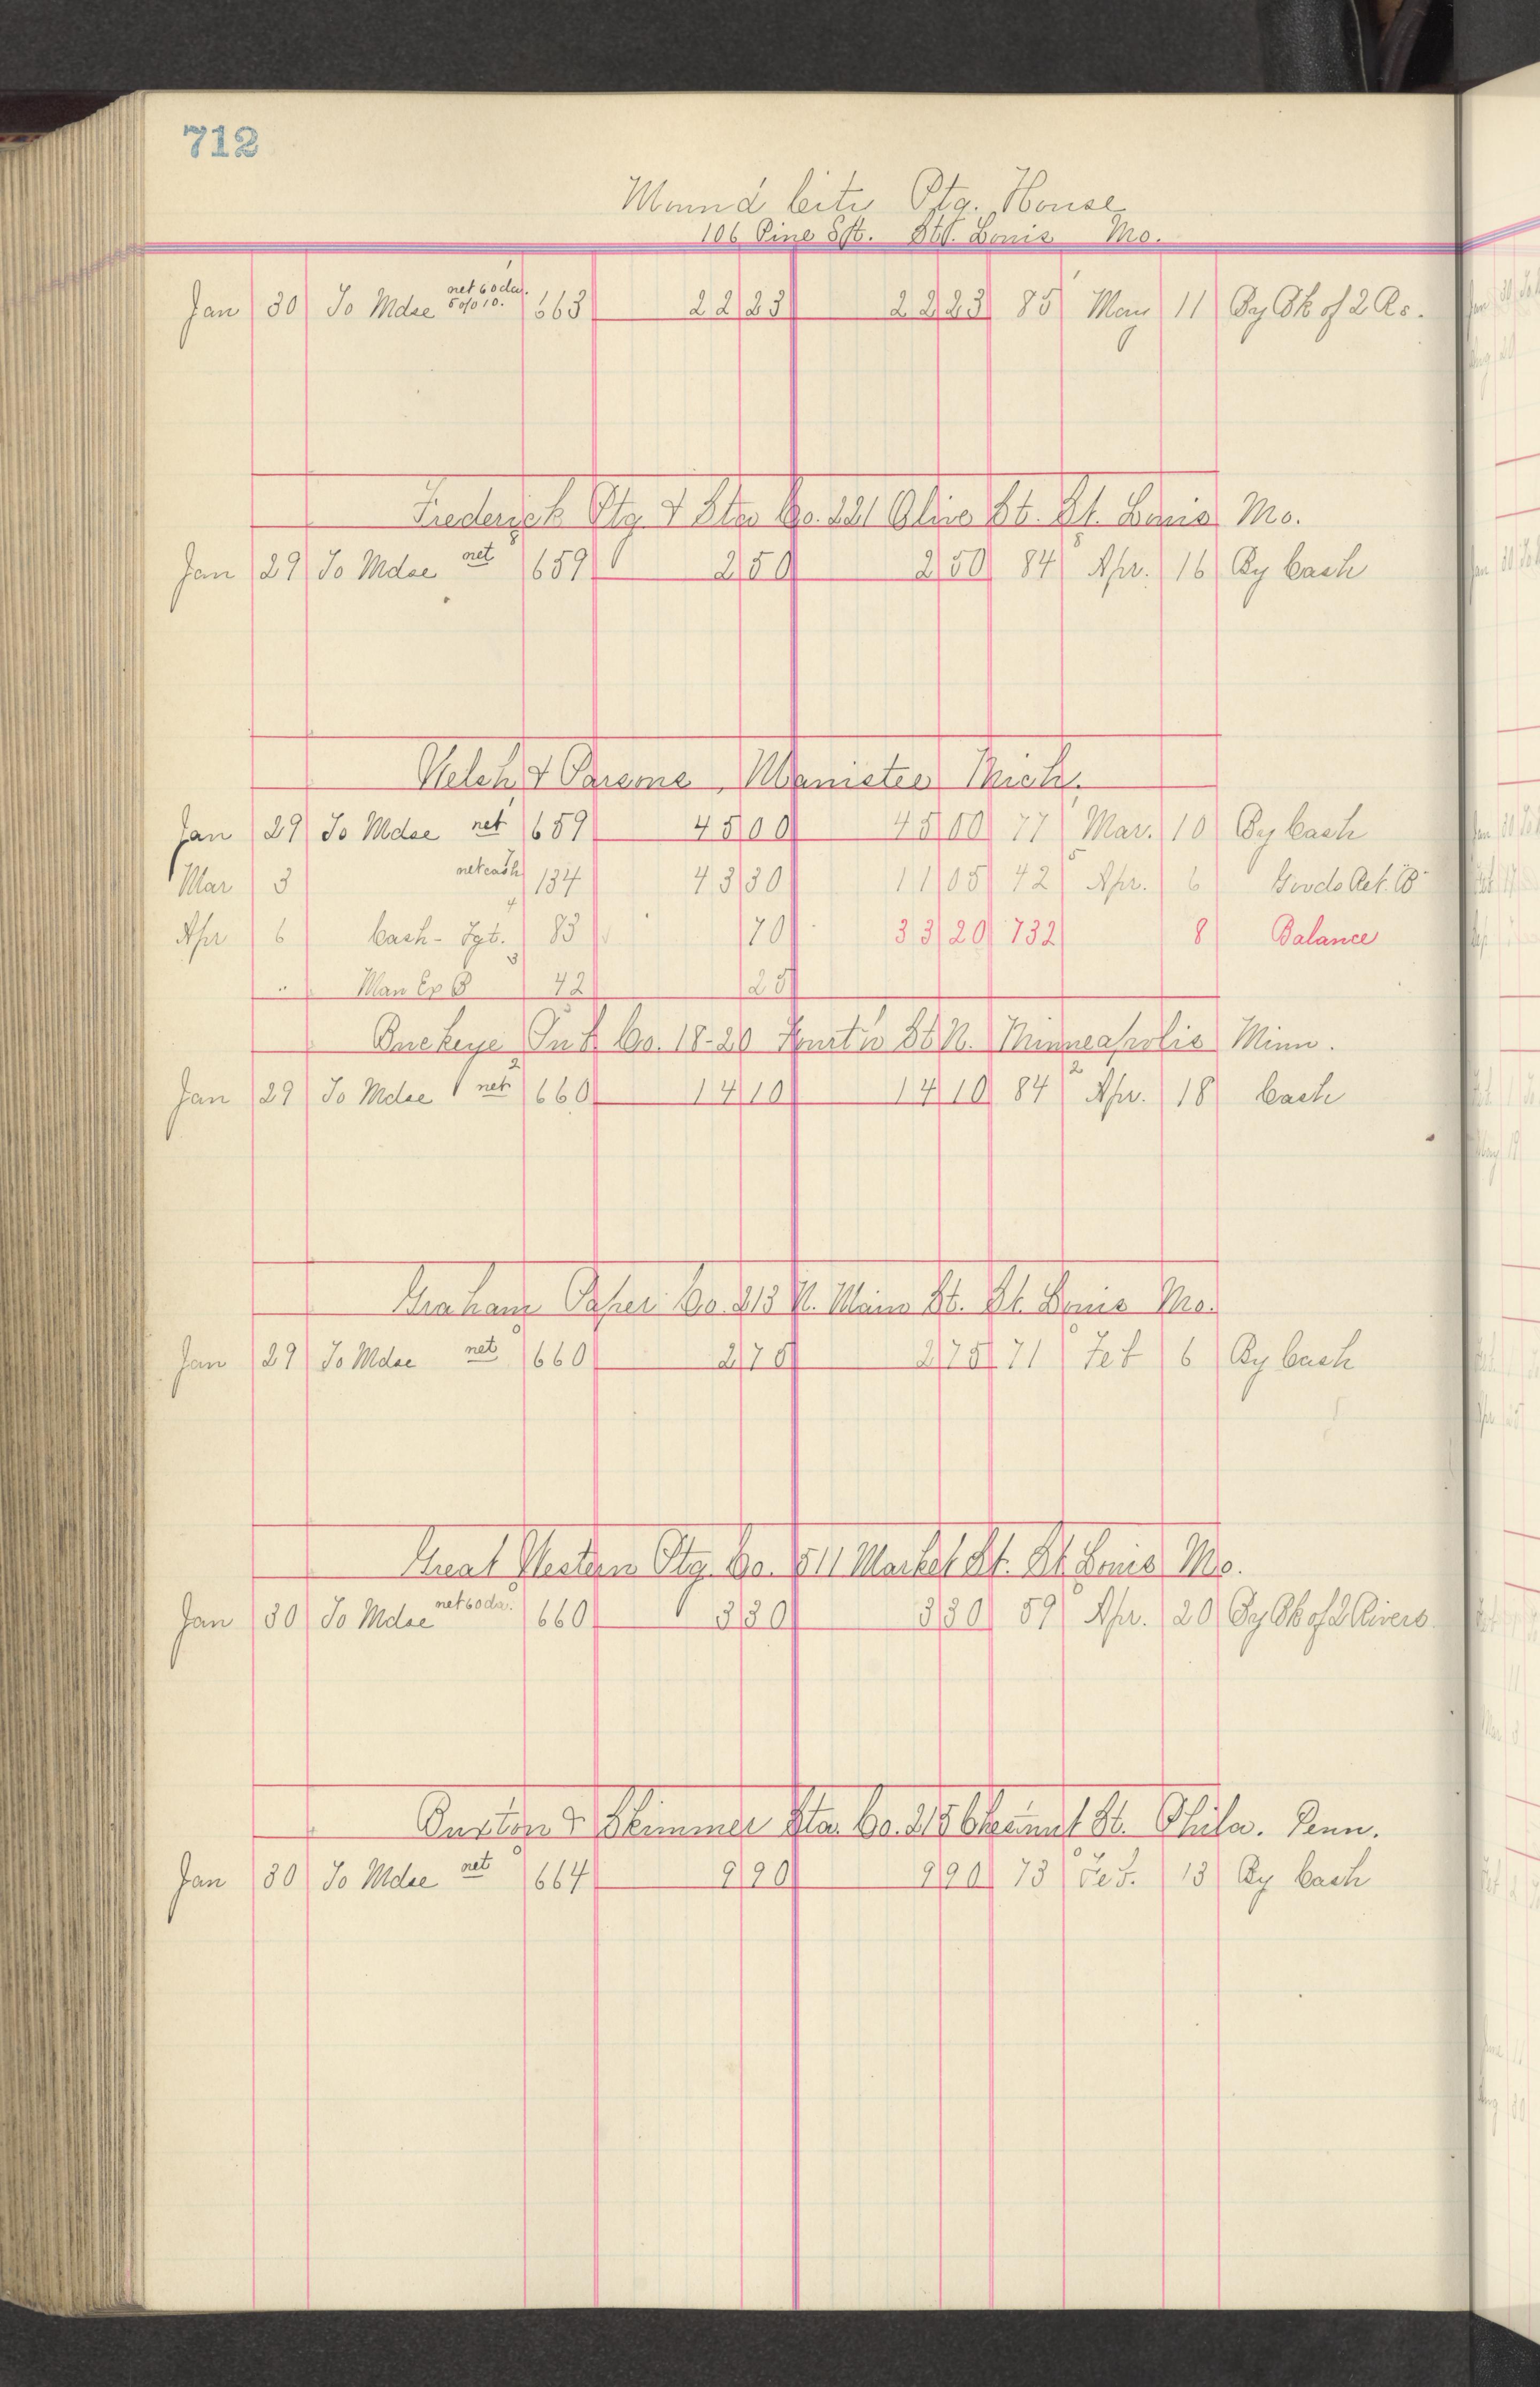 712
Mound City Ptg. House
106 Pine St. St. Louis Mo.
Jan 30 To Mdse net 60 da. 5% 10. 663 22 23 22 23 85 May 11 By Bk of 2 Rs.
Frederick Ptg. & Sta Co. 221 Olive St. St. Louis Mo.
Jan 29 To Mdse net 659 2 50 2 50 84 Apr. 16 By Cash
Welch & Parsons, Manistee Mich.
Jan 29 To Mdse net 659 45 00 45 00 77 Mar. 10 By Cash
Mar 3 net cash 134 43 30 11 05 42 Apr. 6 Goods Ret. B
Apr 6 Cash - Fgt. 83 70 33 20 732 8 Balance
" Man Ex B 42 25
Buckeye Pub Co. 18-20 Fourth St N. Minneapolis Minn.
Jan 29 To Mdse net 660 14 10 14 10 84 Apr. 18 Cash
Graham Paper Co. 213 N. Main St. St. Louis Mo.
Jan 29 To Mdse net 660 2 75 2 75 71 Feb 6 By Cash
Great Western Ptg. Co. 511 Market St. St Louis Mo.
Jan 30 To Mdse net 60 da. 660 3 30 3 30 59 Apr. 20 By Bk of 2 Rivers
Buxton & Skinner Sta. Co. 215 Chestnut St. Phila. Penn.
Jan 30 To Mdse net 664 9 90 9 90 73 Feb. 13 By Cash